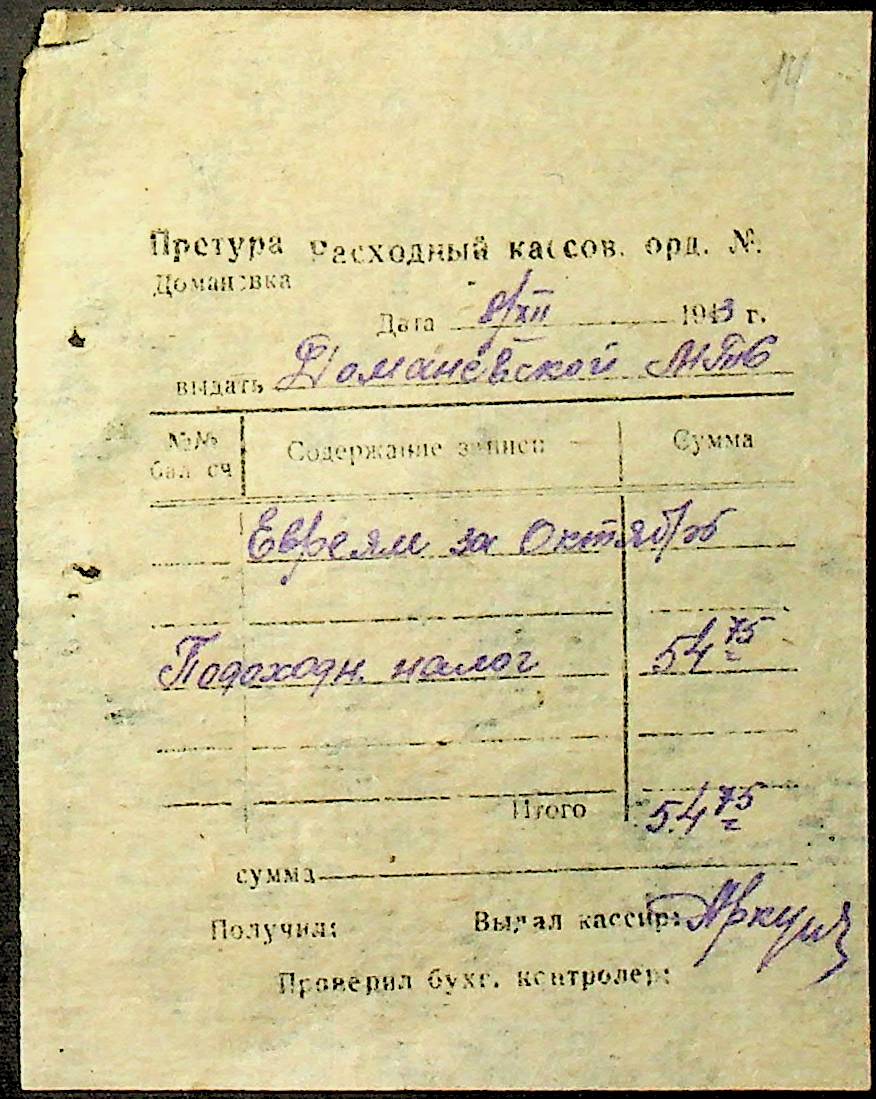 14
Претура Расходный кассов. орд. №.
Домановка
Дата 8/XII 1943 г.
выдать Доманевской
№№ Содержание записи Сумма
бал сч
Евреям за Октябрь
Подоходн. налог 54 75
Итого 54 75
сумма
Получил: Выдал кассир:
Проверил бухг. контролер: